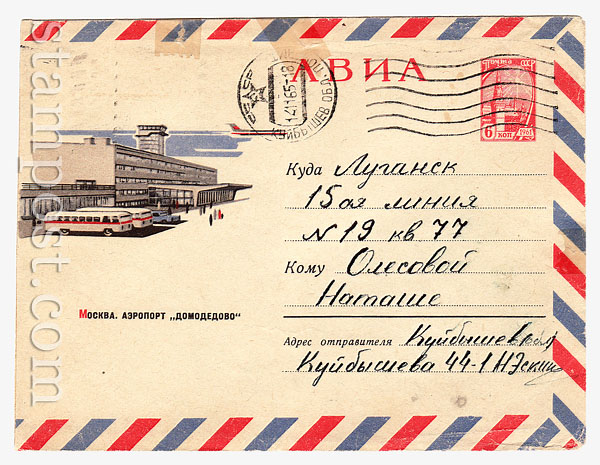 АВИА
ПОЧТА СССР
6
КОП
1961
14 11 65-18
КУЙБЫШЕВ ОБЛ
Куда Луганск
15ая линия
N 19 кв 77
Кому Олесовой
Наташе
МОСКВА. АЭРОПОРТ „ДОМОДЕДОВО“
Адрес отправителя
Куйбышева 44-1
stampost.com